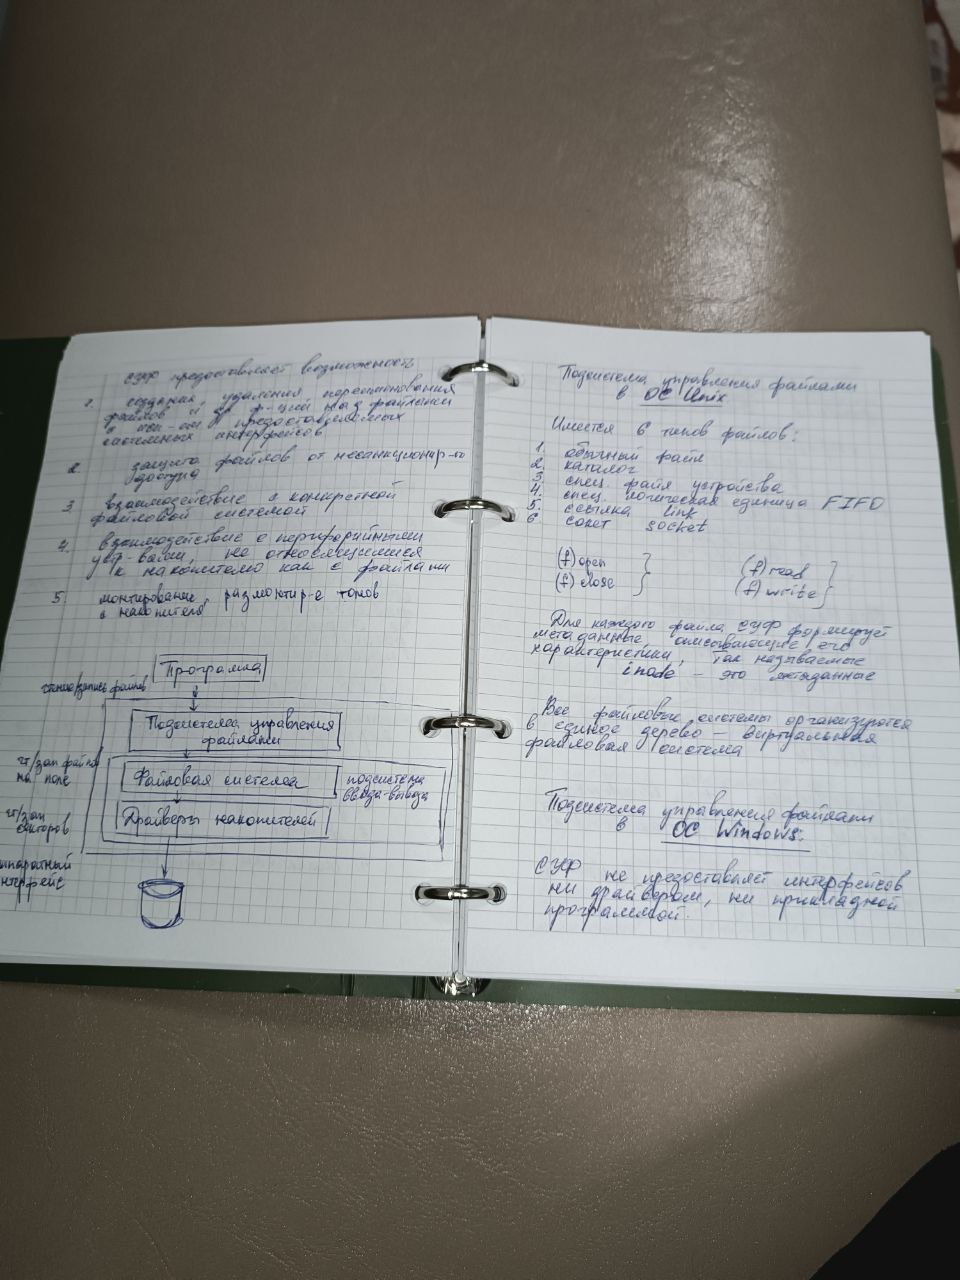 СУФ предоставляет возможность
1. создания, удаления переименования
файлов и др ф-ций над файлами
с исп-ем предоставляемых
системных интерфейсов
2. защита файлов от несанкционир-го
доступа
3 взаимодействие с конкретной
файловой системой
4. взаимодействие с периферийными
устр-вами, не относящимися
к накопителю как с файлами
5 монтирование, размонтир-е томов
накопителя
Программа
чтение/запись файлов
Подсистема управления
файлами
чт/зап файла
на
Файловая система
подсистема
ввода-вывода
чт/зап
секторов
Драйверы накопителей
аппаратный
интерфейс
Подсистема управления файлами
в ОС Unix
Имеется 6 типов файлов:
1. обычный файл
2. каталог
3. спец. файл устройства
4. спец. логическая единица FIFO
5. ссылка link
6 сокет socket
(f) open }
(f) close
(f) read }
(f) write
Для каждого файла СУФ формирует
метаданные, описывающие его
характеристики, так называемые
inode - это метаданные
Все файловые системы организуются
в единое дерево - виртуальная
файловая система
Подсистема управления файлами
в ОС Windows.
СУФ не предоставляет интерфейсов
ни драйвером, ни прикладной
программой.